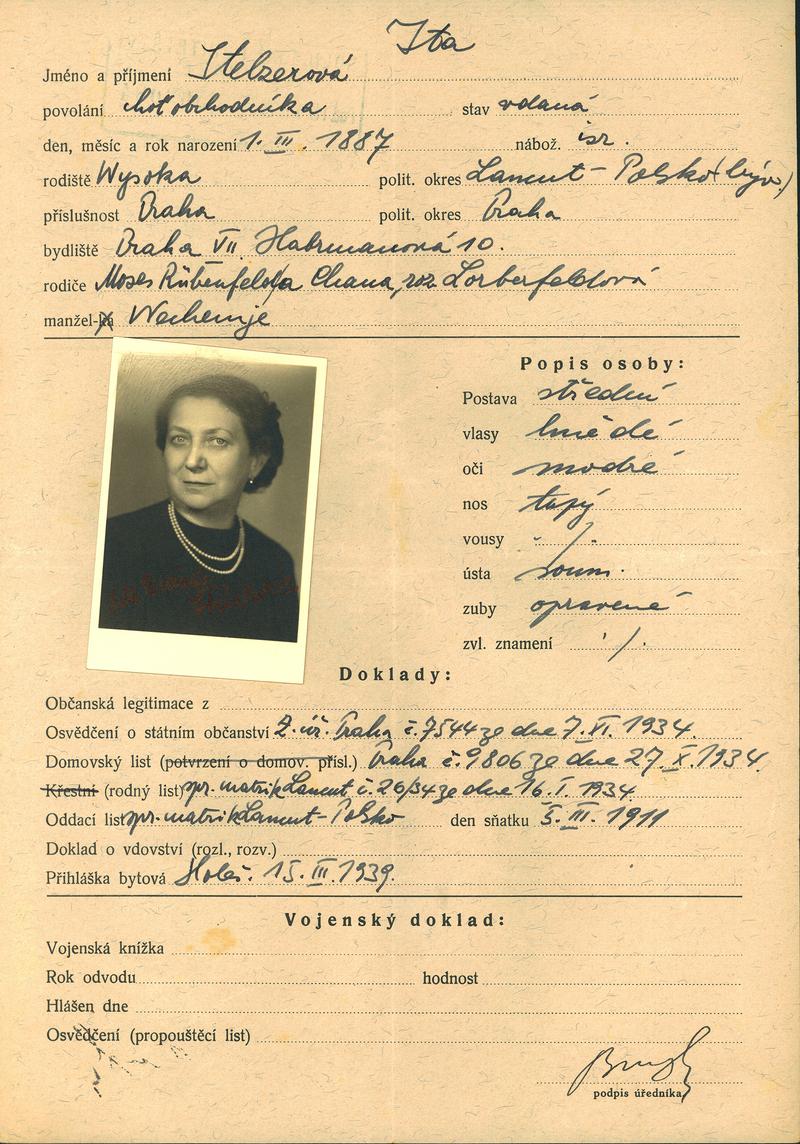 Ita
Jméno a příjmení Stelzerová
povolání choť obchodníka stav vdaná
den, měsíc a rok narození 1. III. 1887 nábož. isr.
rodiště Wysoka polit. okres Lancut - Polsko (býv.)
příslušnost Praha polit. okres Praha
bydliště Praha VII Habrmanová 10.
rodiče Moses Rübenfeld a Chana, roz. Lorberfeldová
manžel-ka
Popis osoby:
Postava střední
vlasy hnědé
oči modré
nos tupý
vousy ./.
ústa soum.
zuby opravené
zvl. znamení ./.
Doklady:
Občanská legitimace z
Osvědčení o státním občanství Z. úř. Praha č. 7544 ze dne 7. XI. 1934.
Domovský list (potvrzení o domov. přísl.) Praha č. 9806 ze dne 27. X. 1934.
Křestní (rodný list) spr. matrik Lancut č. 26/34 ze dne 16. I. 1934.
Oddací list spr. matrik Lancut - Polsko den sňatku 5. III. 1911
Doklad o vdovství (rozl., rozv.)
Přihláška bytová Holeš. 15. III. 1939.
Vojenský doklad:
Vojenská knížka
Rok odvodu hodnost
Hlášen dne
Osvědčení (propouštěcí list)
podpis úředníka